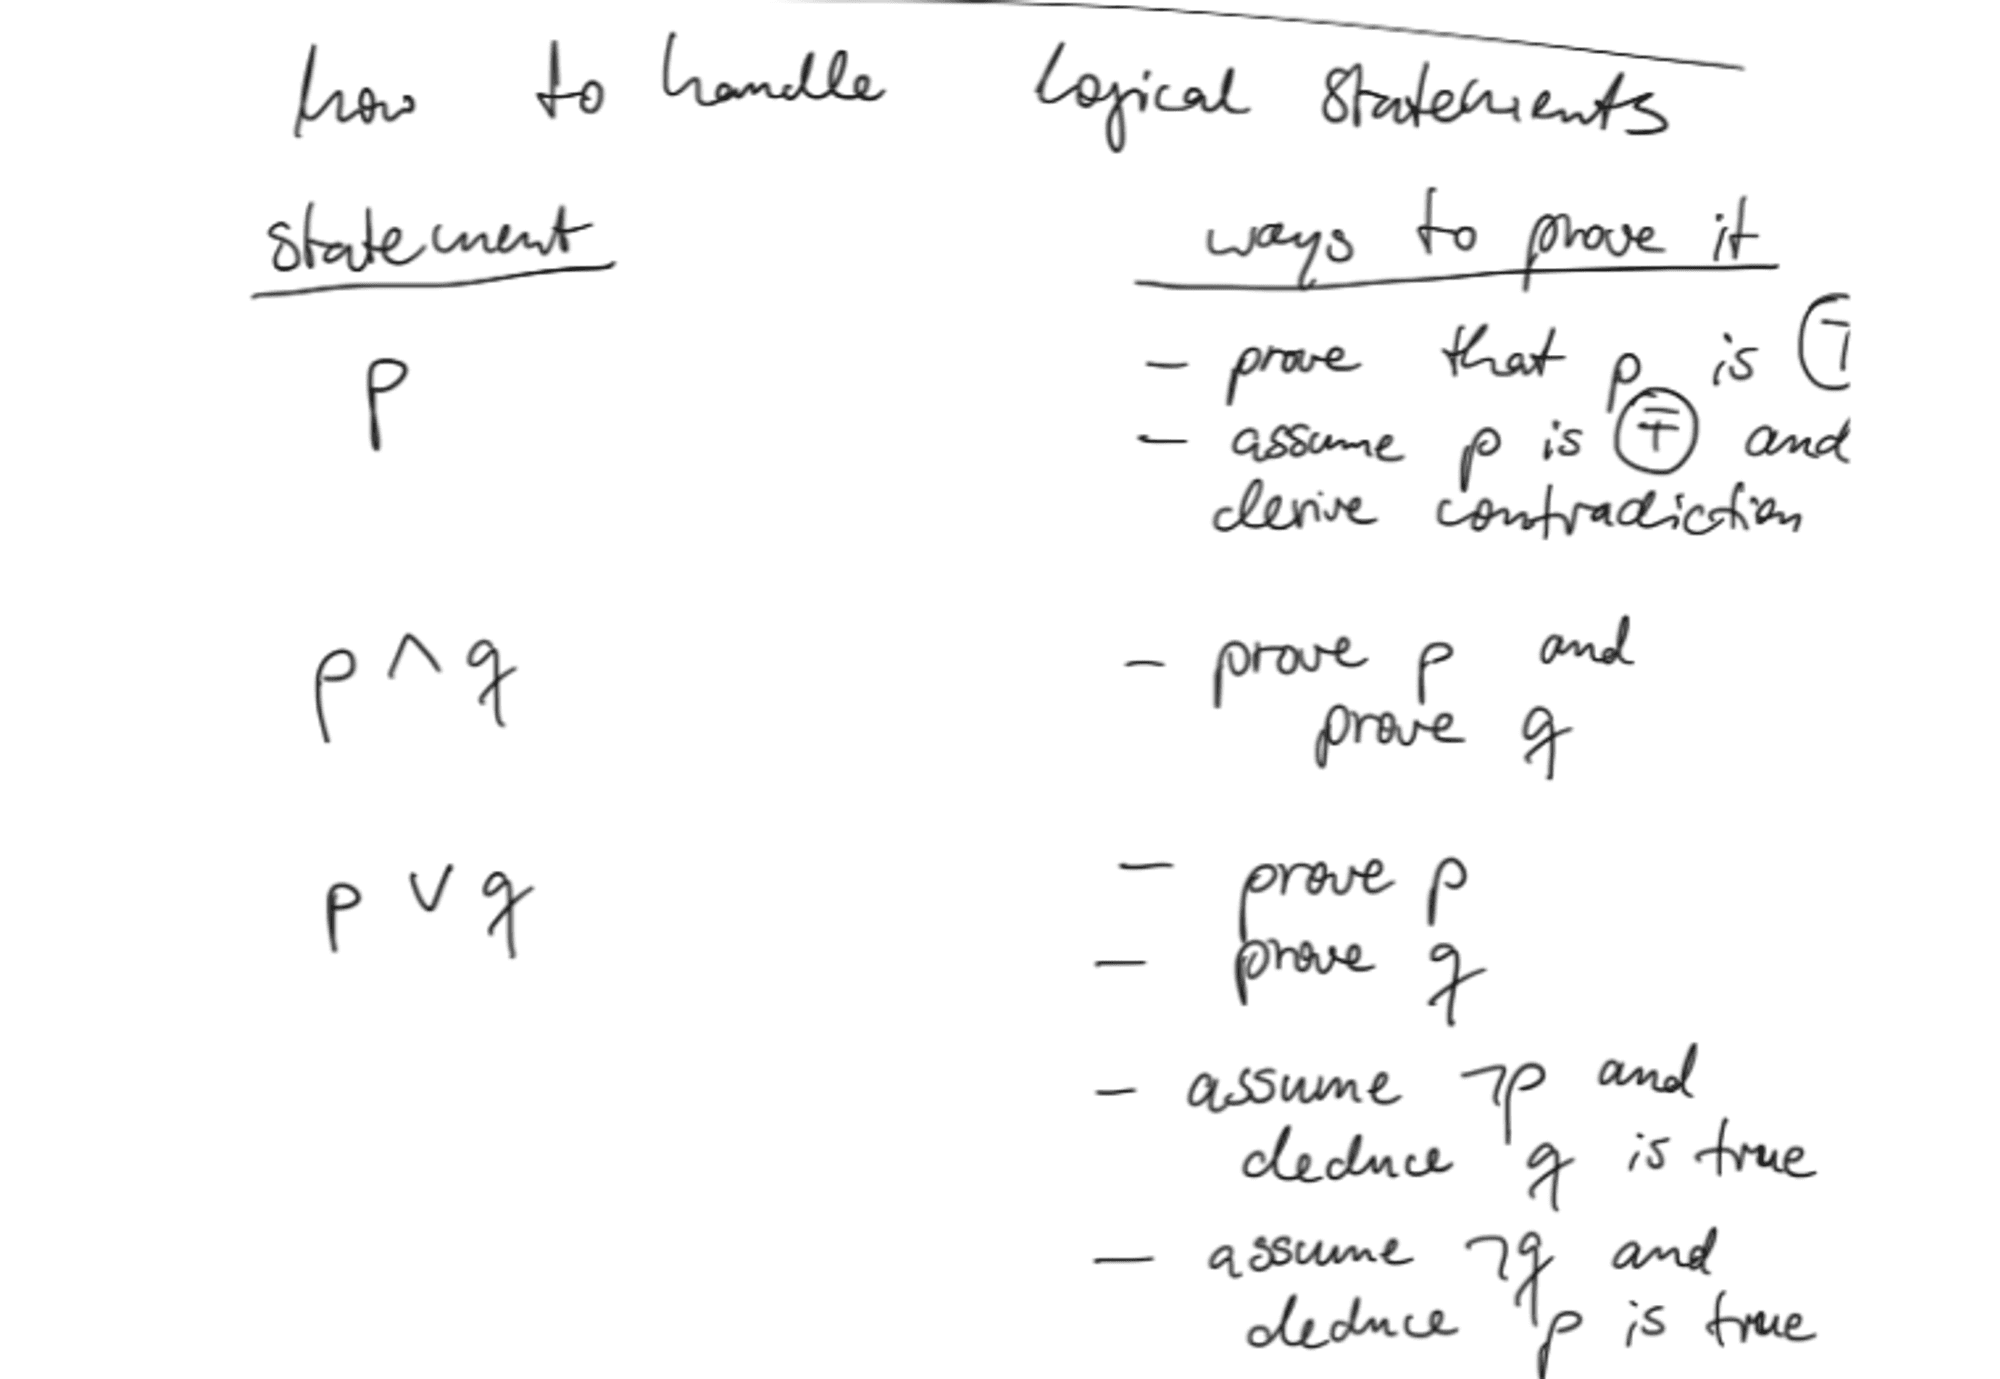 how to handle logical statements
statement ways to prove it
p - prove that p is T
- assume p is F and
derive contradiction
p ∧ q - prove p and
prove q
p ∨ q - prove p
- prove q
- assume ¬p and
deduce q is true
- assume ¬q and
deduce p is true